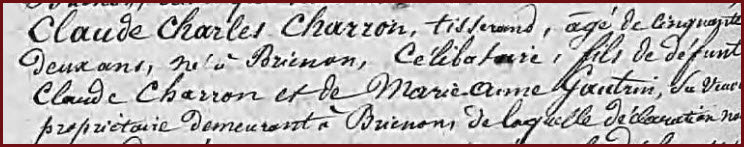 Claude Charles Charron, tisserand, agé de cinquante
deux ans, né à Brienon, Célibataire, fils de défunt
Claude Charron et de Marie-anne Gautrin, Sa veuve
propriétaire demeurant à Brienon, de laquelle déclaration no